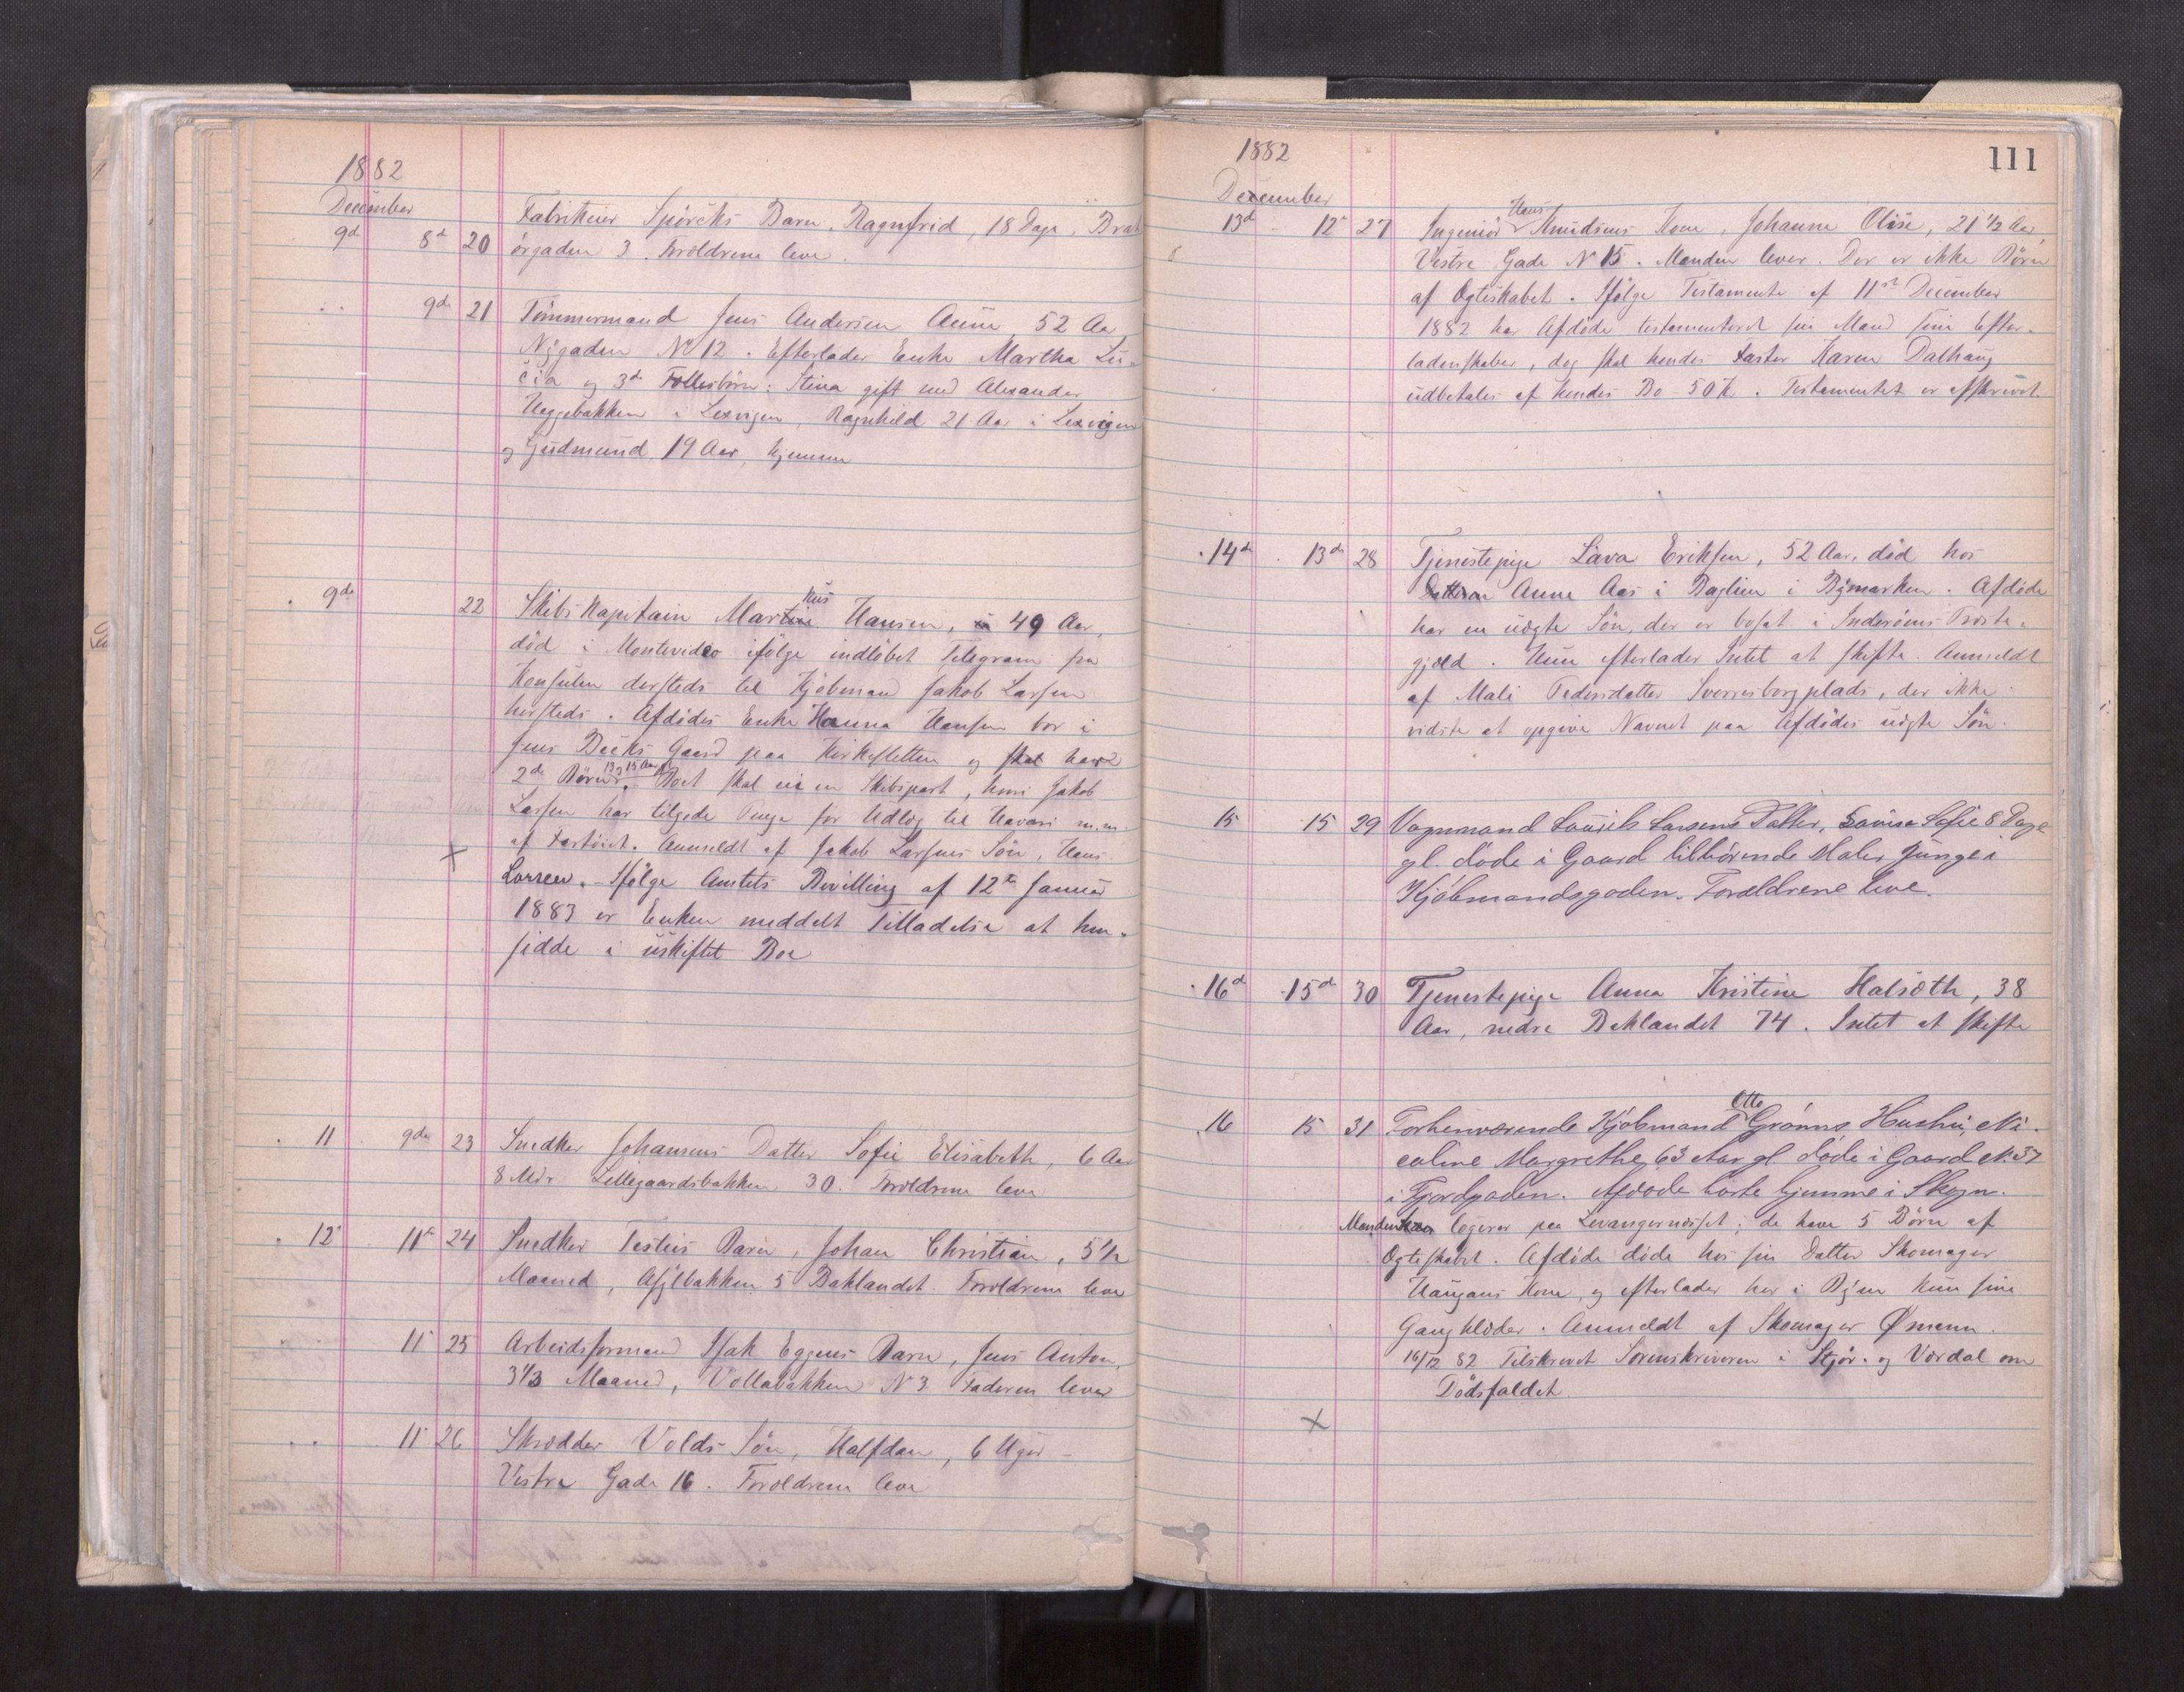 1882
December
9d 8d 20 Fabrikeier Spörcks Barn, Ragnfrid, 18 Dage, Brat
örgaden 3. Forældrene leve.
9de 21 Tømmermand Jens Andersen Aune, 52 Aar
Nygaden No 12. Efterlader Enke Martha Lu-
cia og 3de Fællesbörn: Stina gift med Alexander
Heggebakken i Lexvigen, Ragnhild 21 Aar i Lexvigen
og Gudmund 19 Aar, hjemme
9de 22 Skibskapitain Martinius Hansen, 49 Aar,
död i Montevideo ifölge indløbet Telegram fra
Konsulen dersteds til Kjøbmand Jakob Larsen
hersteds. Afdødes Enke Hanna Hansen bor i
Jens Gaard paa Kirkesletten og skal have
2de Børn 13 og 15 Aar. Boet skal eie en Skibspart, hvori Jakob
Larsen har tilgode Penge for Udlæg til Havari m.m.
af Fartöiet. Anmeldt af Jakob Larsens Sön, Hans
Larsen. Ifölge Amtets Bevilling af 12te Januar
1883 er Enken meddelt Tilladelse at hen-
sidde i uskiftet Boe
11 9de 23 Snedker Johansens Datter Sofie Elisabeth, 6 Aar
8 Mdr Lillegaardsbakken 30. Forældrene leve
12 11te 24 Snedker Barn, Johan Christian, 5 1/2
Maaned, bakken 5 Baklandet. Forældrene leve
11 25 Arbeidsformand Isak Eggens Barn, Jens Anton,
3 1/3 Maaned, Vollabakken No 3 Faderen lever
11 26 Skrædder Volds Sön, Halfdan, 6 Uger
Vestre Gade 16. Forældrene leve
111
1882
December
13d 12te 27 Ingeniör Hans Knudsens Kone, Johanne Olise, 21 1/2 Aar,
Vestre Gade No 15. Manden lever. Der er ikke Börn
af Ægteskabet. Ifölge Testamente af 11te December
1882 har Afdöde testamenteret sin Mand sine Efter-
ladenskaber, dog skal hendes Faster Karen Dalhaug
udbetales af hendes Bo 50 K. Testamentet er afskrevet.
14d 13de 28 Tjenestepige Lava Eriksen, 52 Aar, död hos
Anne Aas i Baglien i Bymarken. Afdöde
har en uægte Sön, der er bosat i Inderöens Præste-
gjæld. Hun efterlader Intet at skifte. Anmeldt
af Mali Pedersdatter Sverresborgplads, der ikke
vidste at opgive Navnet paa Afdödes uægte Sön.
15 15 29 Vognmand Laurits Larsens Datter, Lovise Sofie 8 Dage
gl. döde i Gaard tilhörende Maler Junge i
Kjöbmandsgaden. Forældrene leve.
16d 15d 30 Tjenestepige Anna Kristine Halsæth, 38
Aar, nedre Baklandet 74. Intet at skifte
16 15 31 Forhenværende Kjöbmand Otto Grönns Hustru, Ni-
coline Margrethe, 63 Aar gl döde i Gaard No. 37
i Fjordgaden. Afdöde hörte hjemme i Skogn.
Manden logerer paa Levangernæsset; de have 5 Börn af
Ægteskabet. Afdöde döde hos sin Datter Skomager
Haugans Kone, og efterlader her i Byen kun sine
Gangklæder. Anmeldt af Skomager Ømann.
16/12 82 Tilskrevet Sorenskriveren i Stjör- og Værdal om
Dödsfaldet.